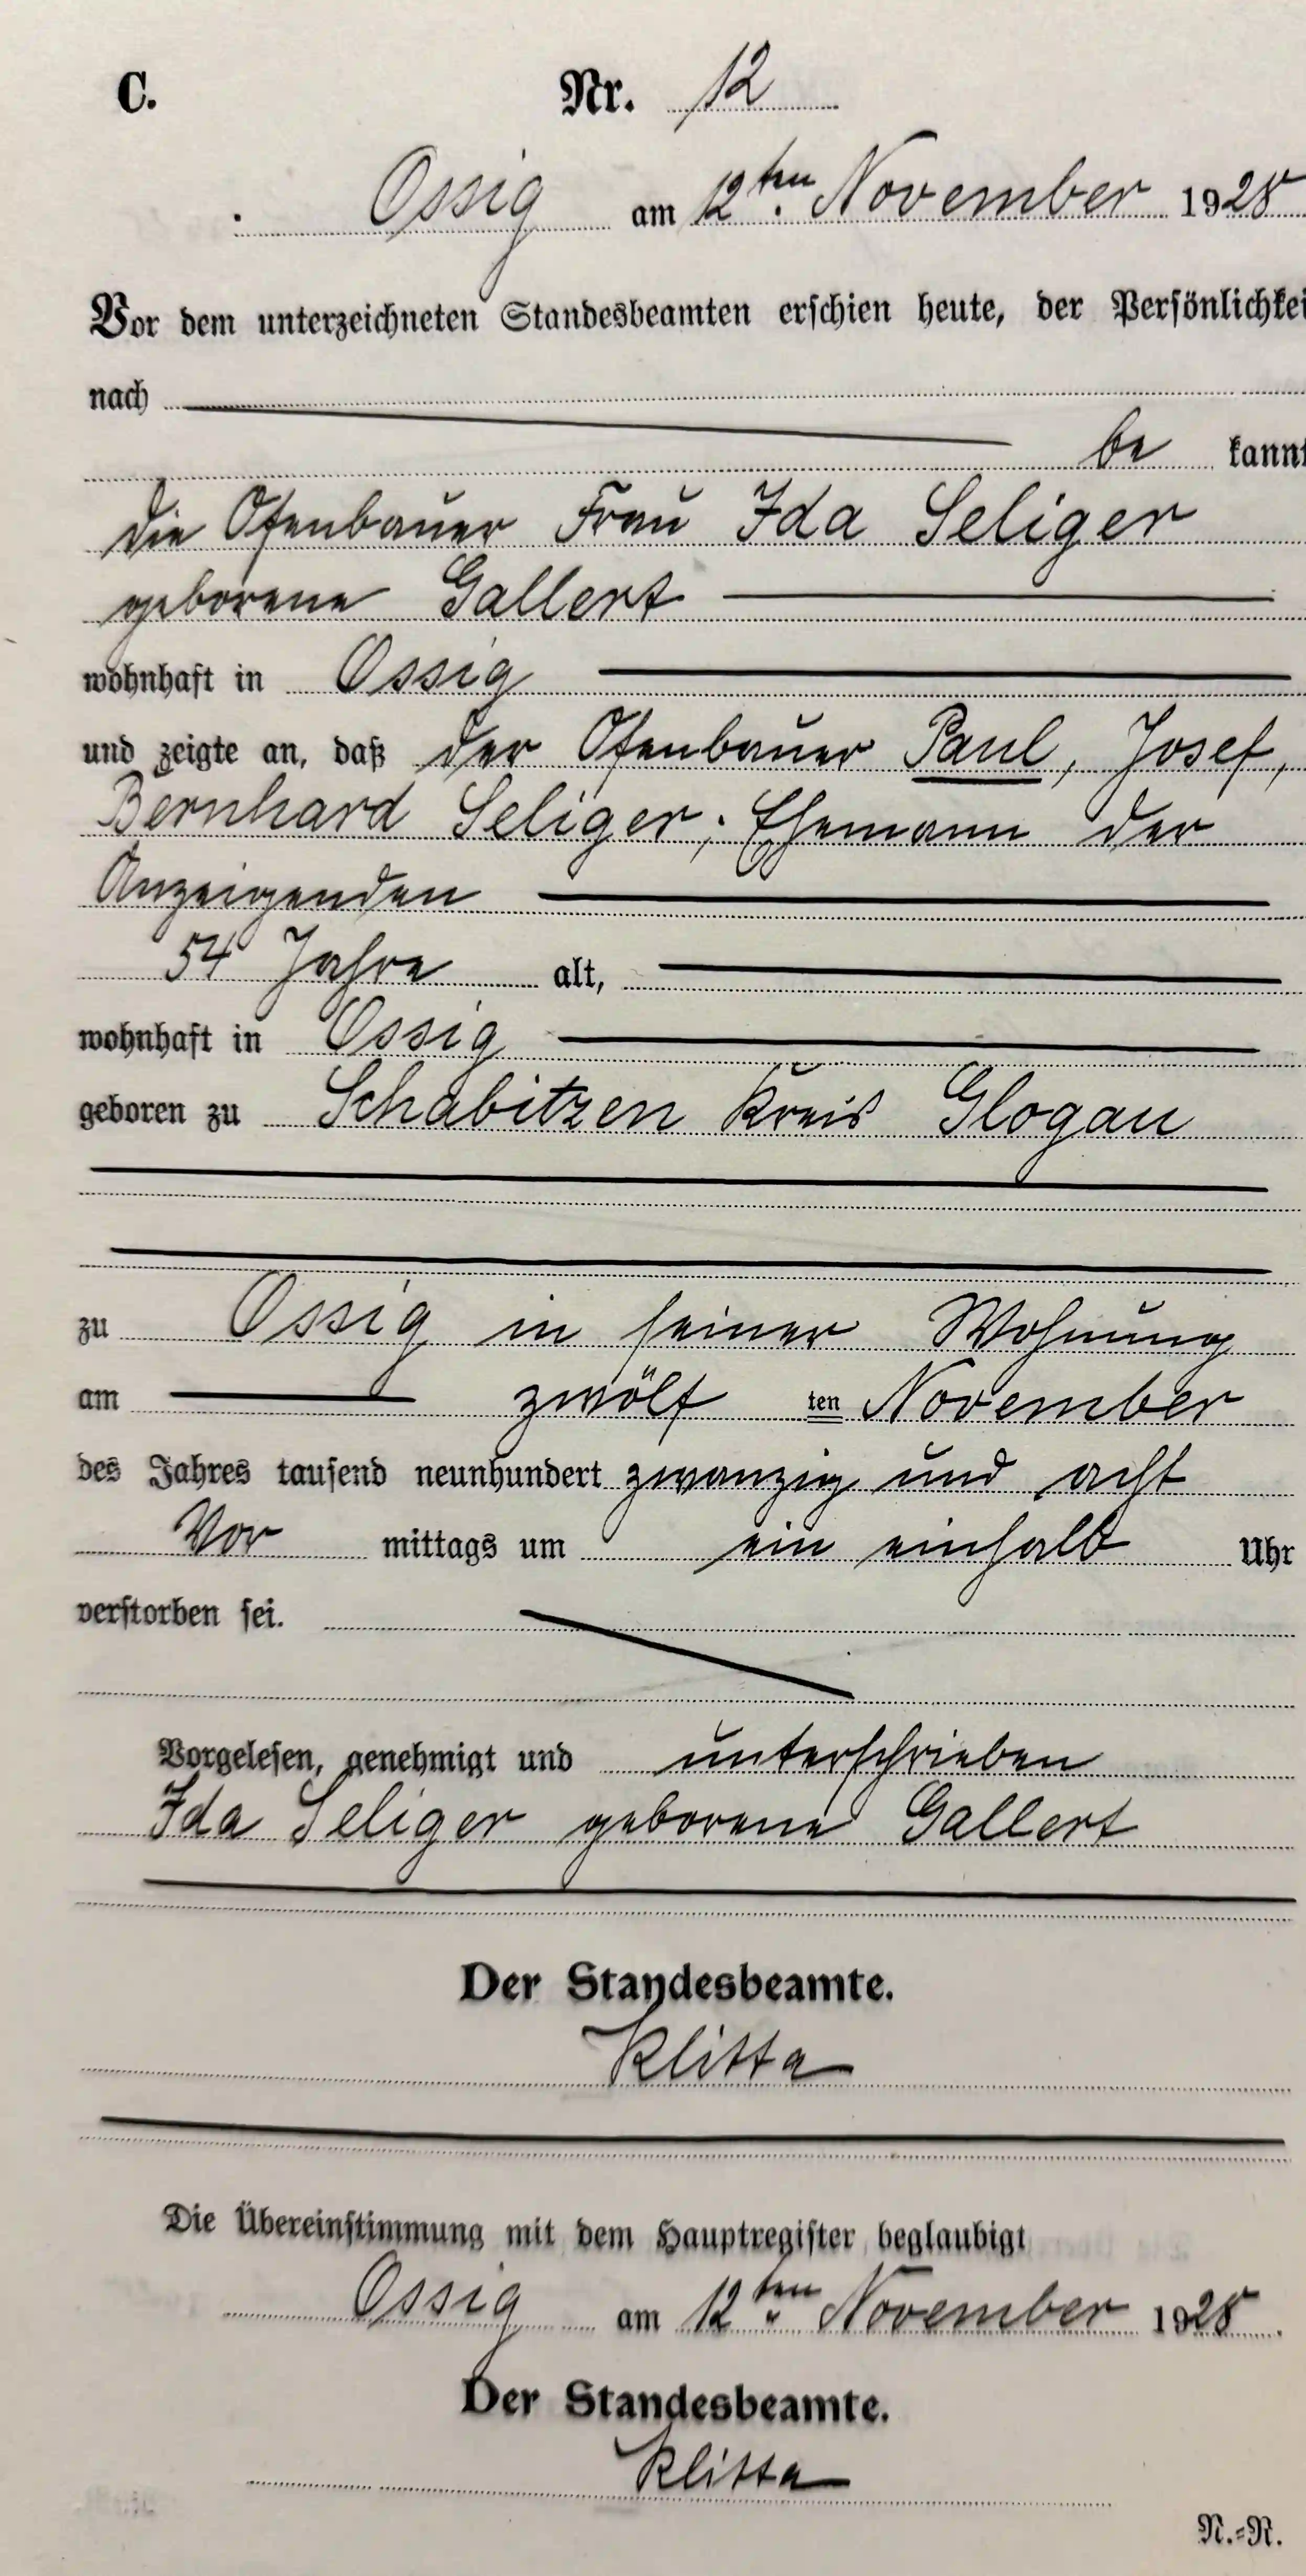 C. Nr. 12
Ossig am 12ten November 1928
Vor dem unterzeichneten Standesbeamten erschien heute, der Persönlichkei
nach
be kannt
die Ofenbauer Frau Ida Seliger
geborene Gallert
wohnhaft in Ossig
und zeigte an, daß der Ofenbauer Paul, Josef,
Bernhard Seliger, Ehemann der
Anzeigenden
54 Jahre alt,
wohnhaft in Ossig
geboren zu Schabitzen Kreis Glogau
zu Ossig in seiner Wohnung
am zwölf ten November
des Jahres tausend neunhundert zwanzig und acht
Vor mittags um ein einhalb Uhr
verstorben sei.
Vorgelesen, genehmigt und unterschrieben
Ida Seliger geborene Gallert
Der Standesbeamte.
Klitta
Die Übereinstimmung mit dem Hauptregister beglaubigt
Ossig am 12ten November 1928.
Der Standesbeamte.
Klitta
N.=R.